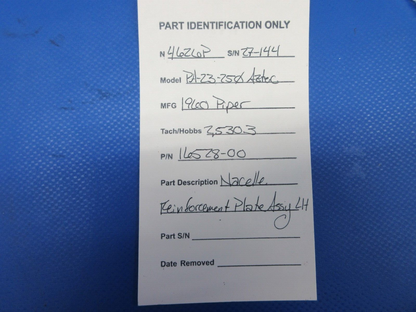 PART IDENTIFICATION ONLY
N 4626P S/N 27-144
Model PA-23-250 Aztec
MFG 1960 Piper
Tach/Hobbs 2,530.3
P/N 16528-00
Part Description Nacelle
Reinforcement Plate Assy LH
Part S/N
Date Removed